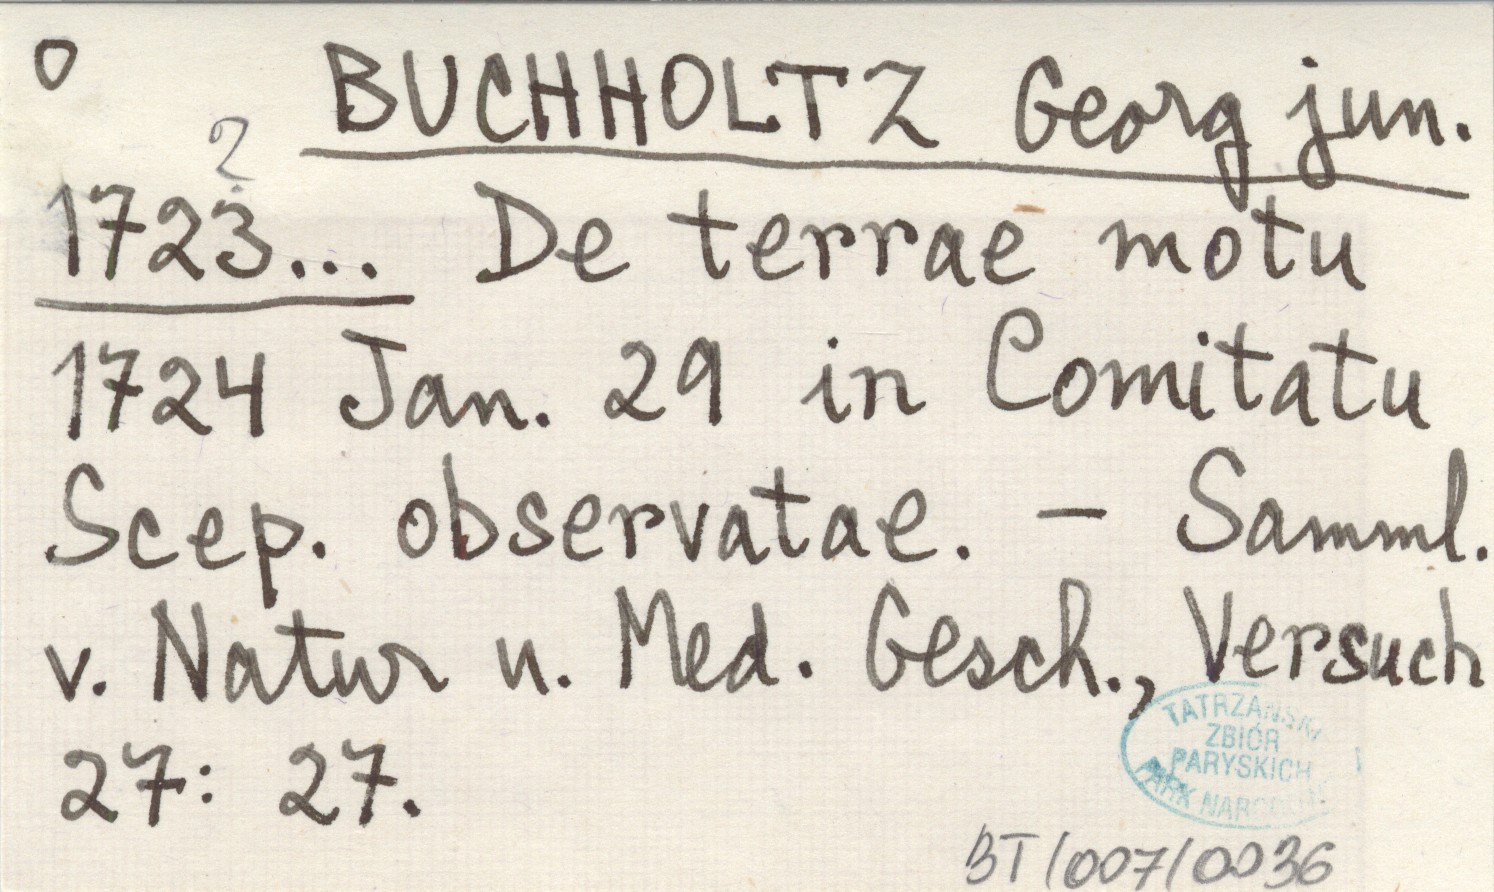 o BUCHHOLTZ Georg jun.
?
1723... De terrae motu
1724 Jan. 29 in Comitatu
Scep. observatae. – Samml.
v. Natur u. Med. Gesch., Versuch
27: 27.
TATRZAŃSKI
ZBIÓR
PARYSKICH
PARK NARODOWY
BT/007/0036